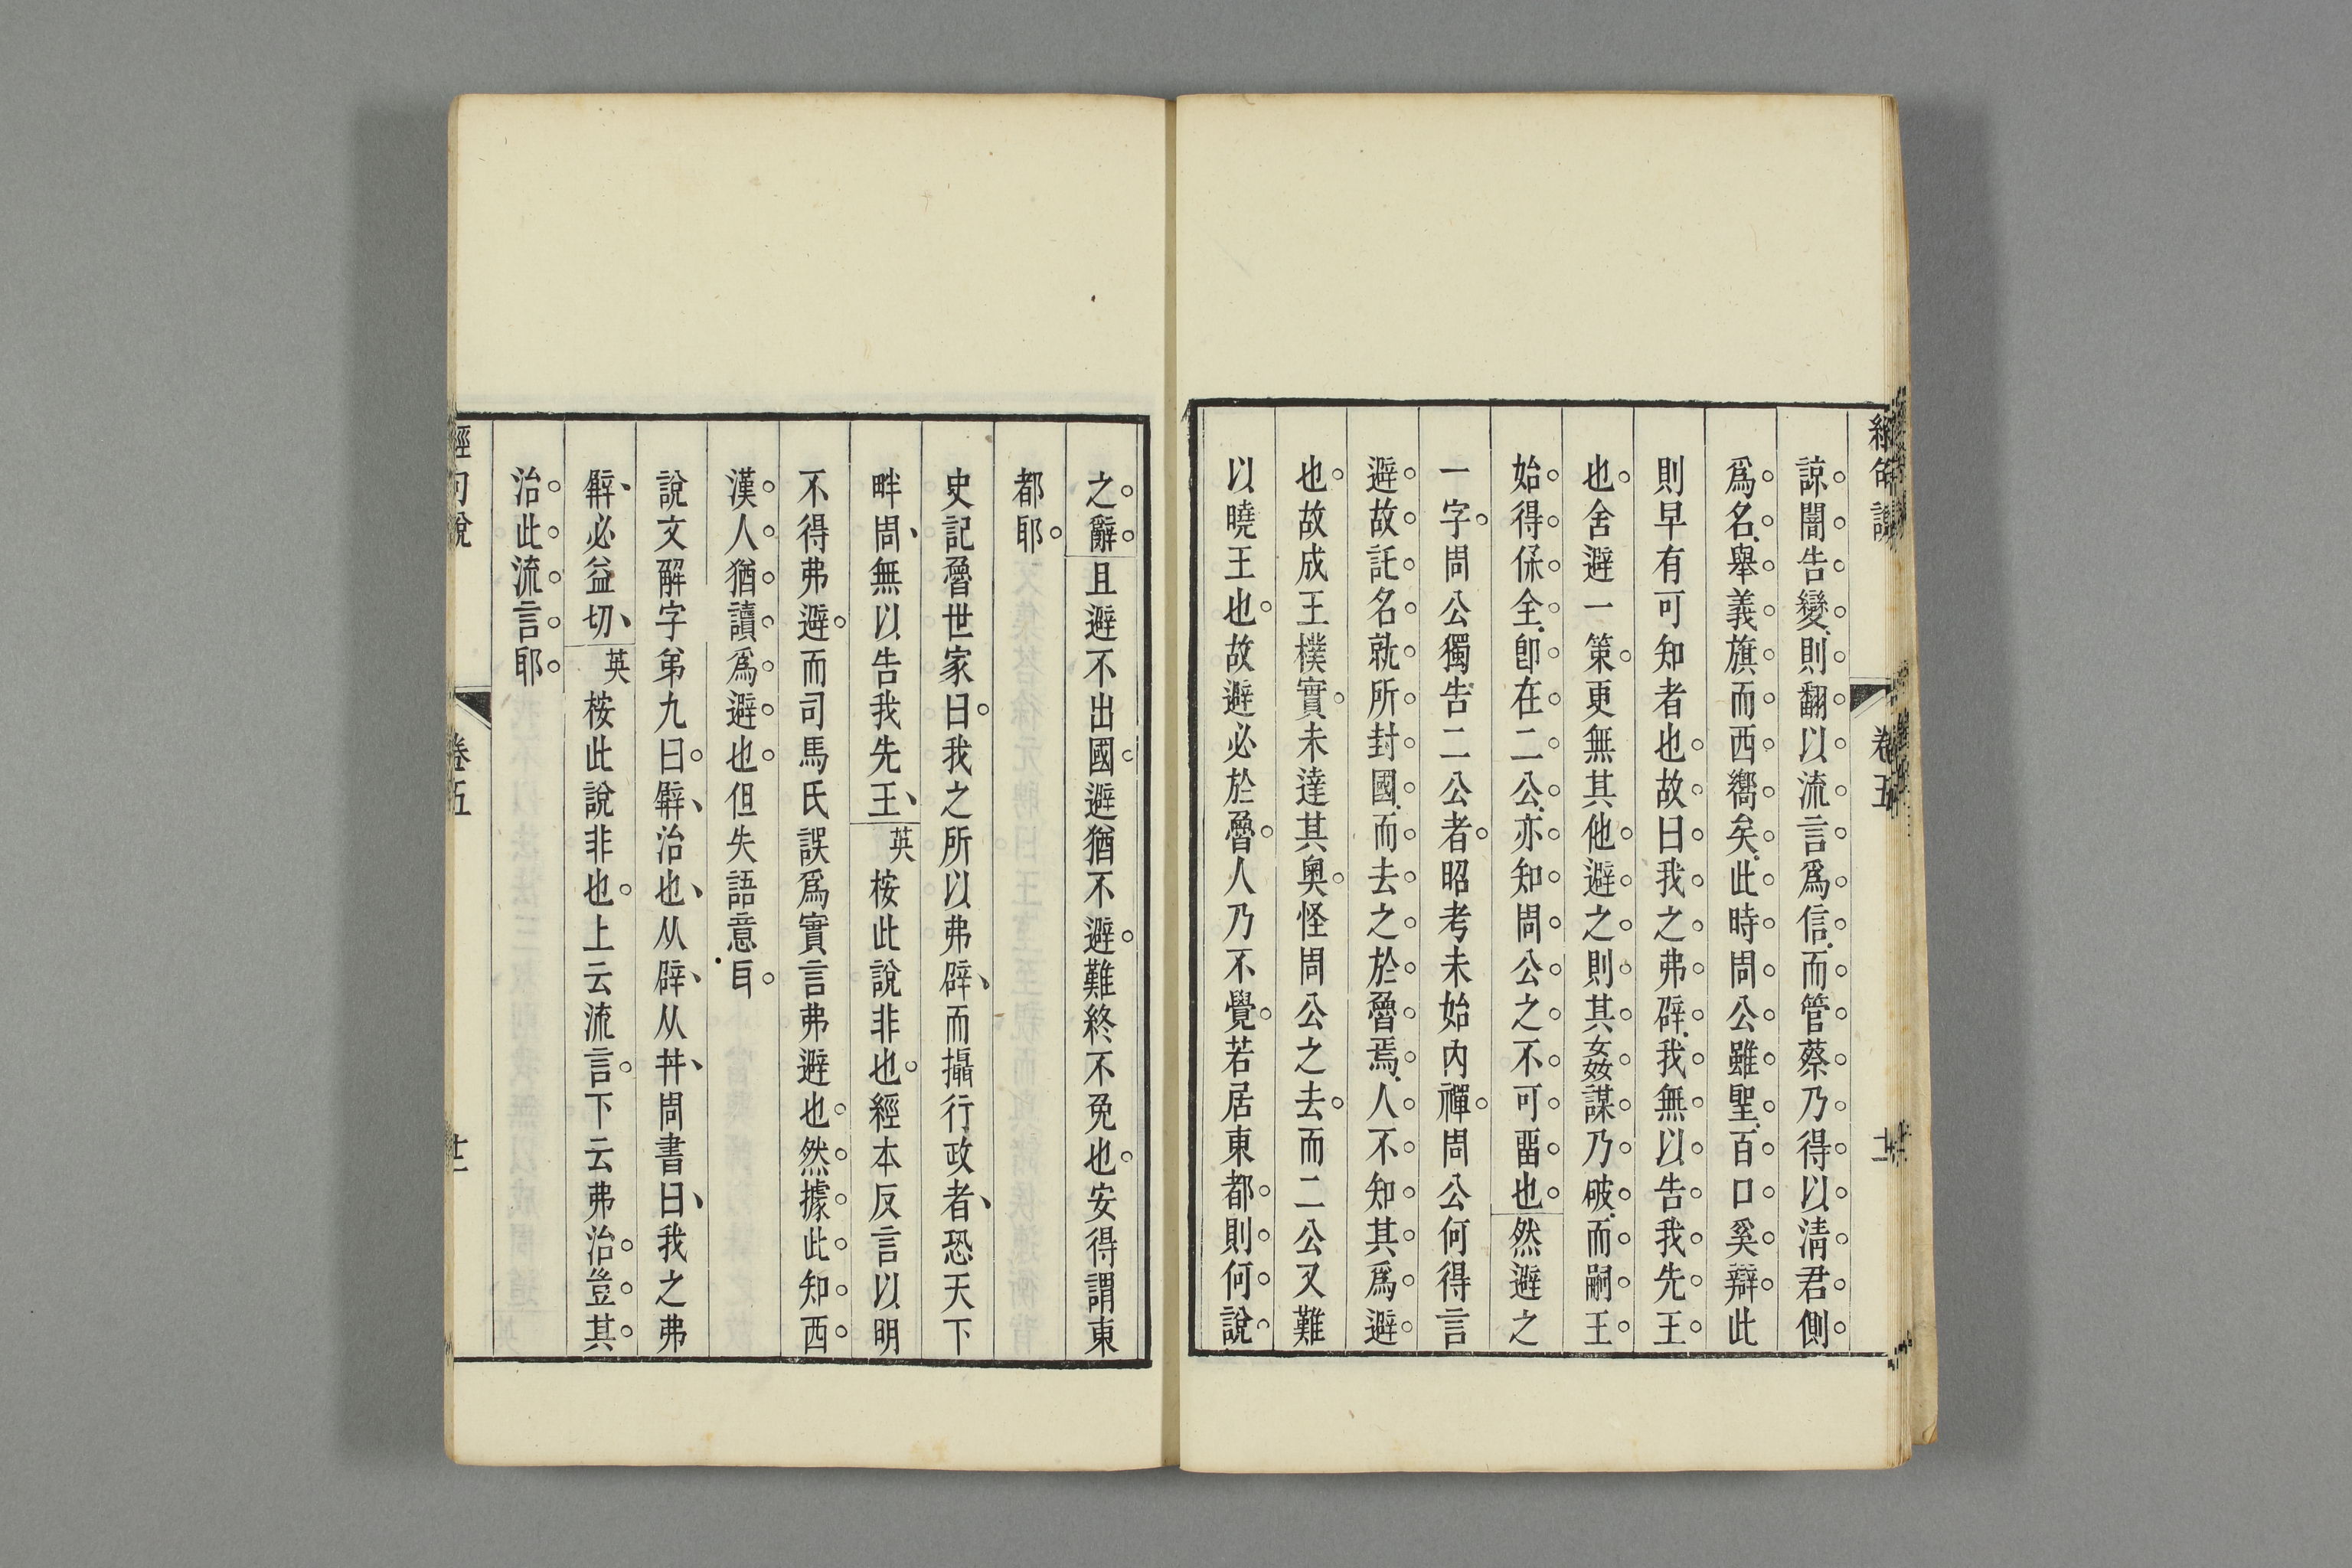 諒闇告變則翻以流言爲信而管蔡乃得以淸君側
爲名舉義旗而西嚮矣此時周公雖聖百口奚辯此
則早有可知者也故曰我之弗辟我無以告我先王
也舍避一策更無其他避之則其姦謀乃破而嗣王
始得保全卽在二公亦知周公之不可畱也然避之
一字周公獨告二公者昭考未始內禪周公何得言
避故託名就所封國而去之於魯焉人不知其爲避
也故成王樸實未達其奧怪周公之去而二公又難
以曉王也故避必於魯人乃不覺若居東都則何說
之辭且避不出國避猶不避難終不免也安得謂東
都耶
史記魯世家曰我之所以弗辟而攝行政者恐天下
畔周無以告我先王英桉此說非也經本反言以明
不得弗避而司馬氏誤爲實言弗避也然據此知西
漢人猶讀爲避也但失語意耳
說文解字弟九曰𤿌治也从辟从井周書曰我之弗
𤿌必益切英桉此說非也上云流言下云弗治豈其
治此流言耶
經句說 卷五